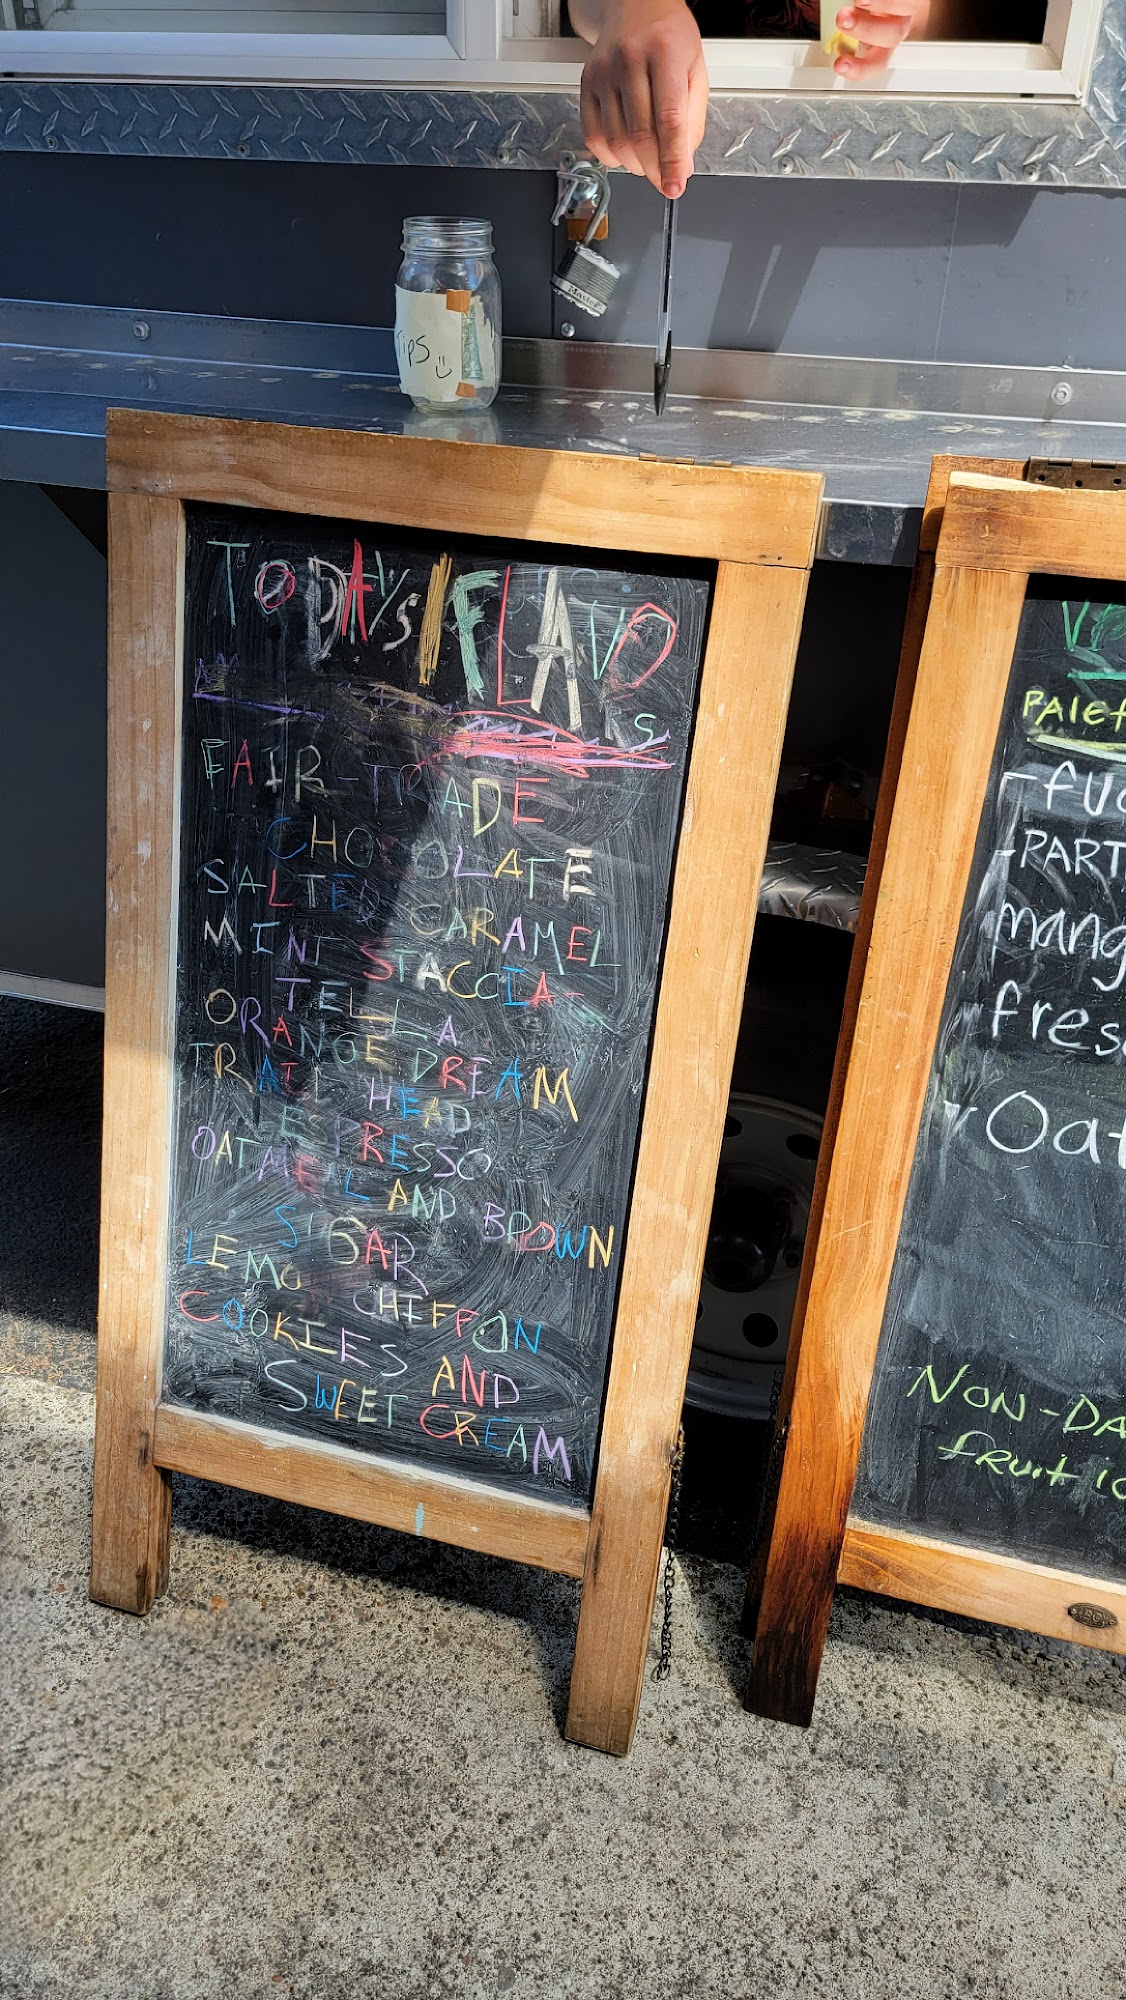 TIPS
Master
TODAY'S FLAVO
RS
FAIR-TRADE
CHOCOLATE
SALTED CARAMEL
MINT STACCIA-
TELLA
ORANGE DREAM
TRAIL HEAD
ESPRESSO
OATMEAL AND BROWN
SUGAR
LEMON CHIFFON
COOKIES AND
SWEET CREAM
PAleT
- fud
- PART
mang
fres
- Oat
NON-DA
fruit ic